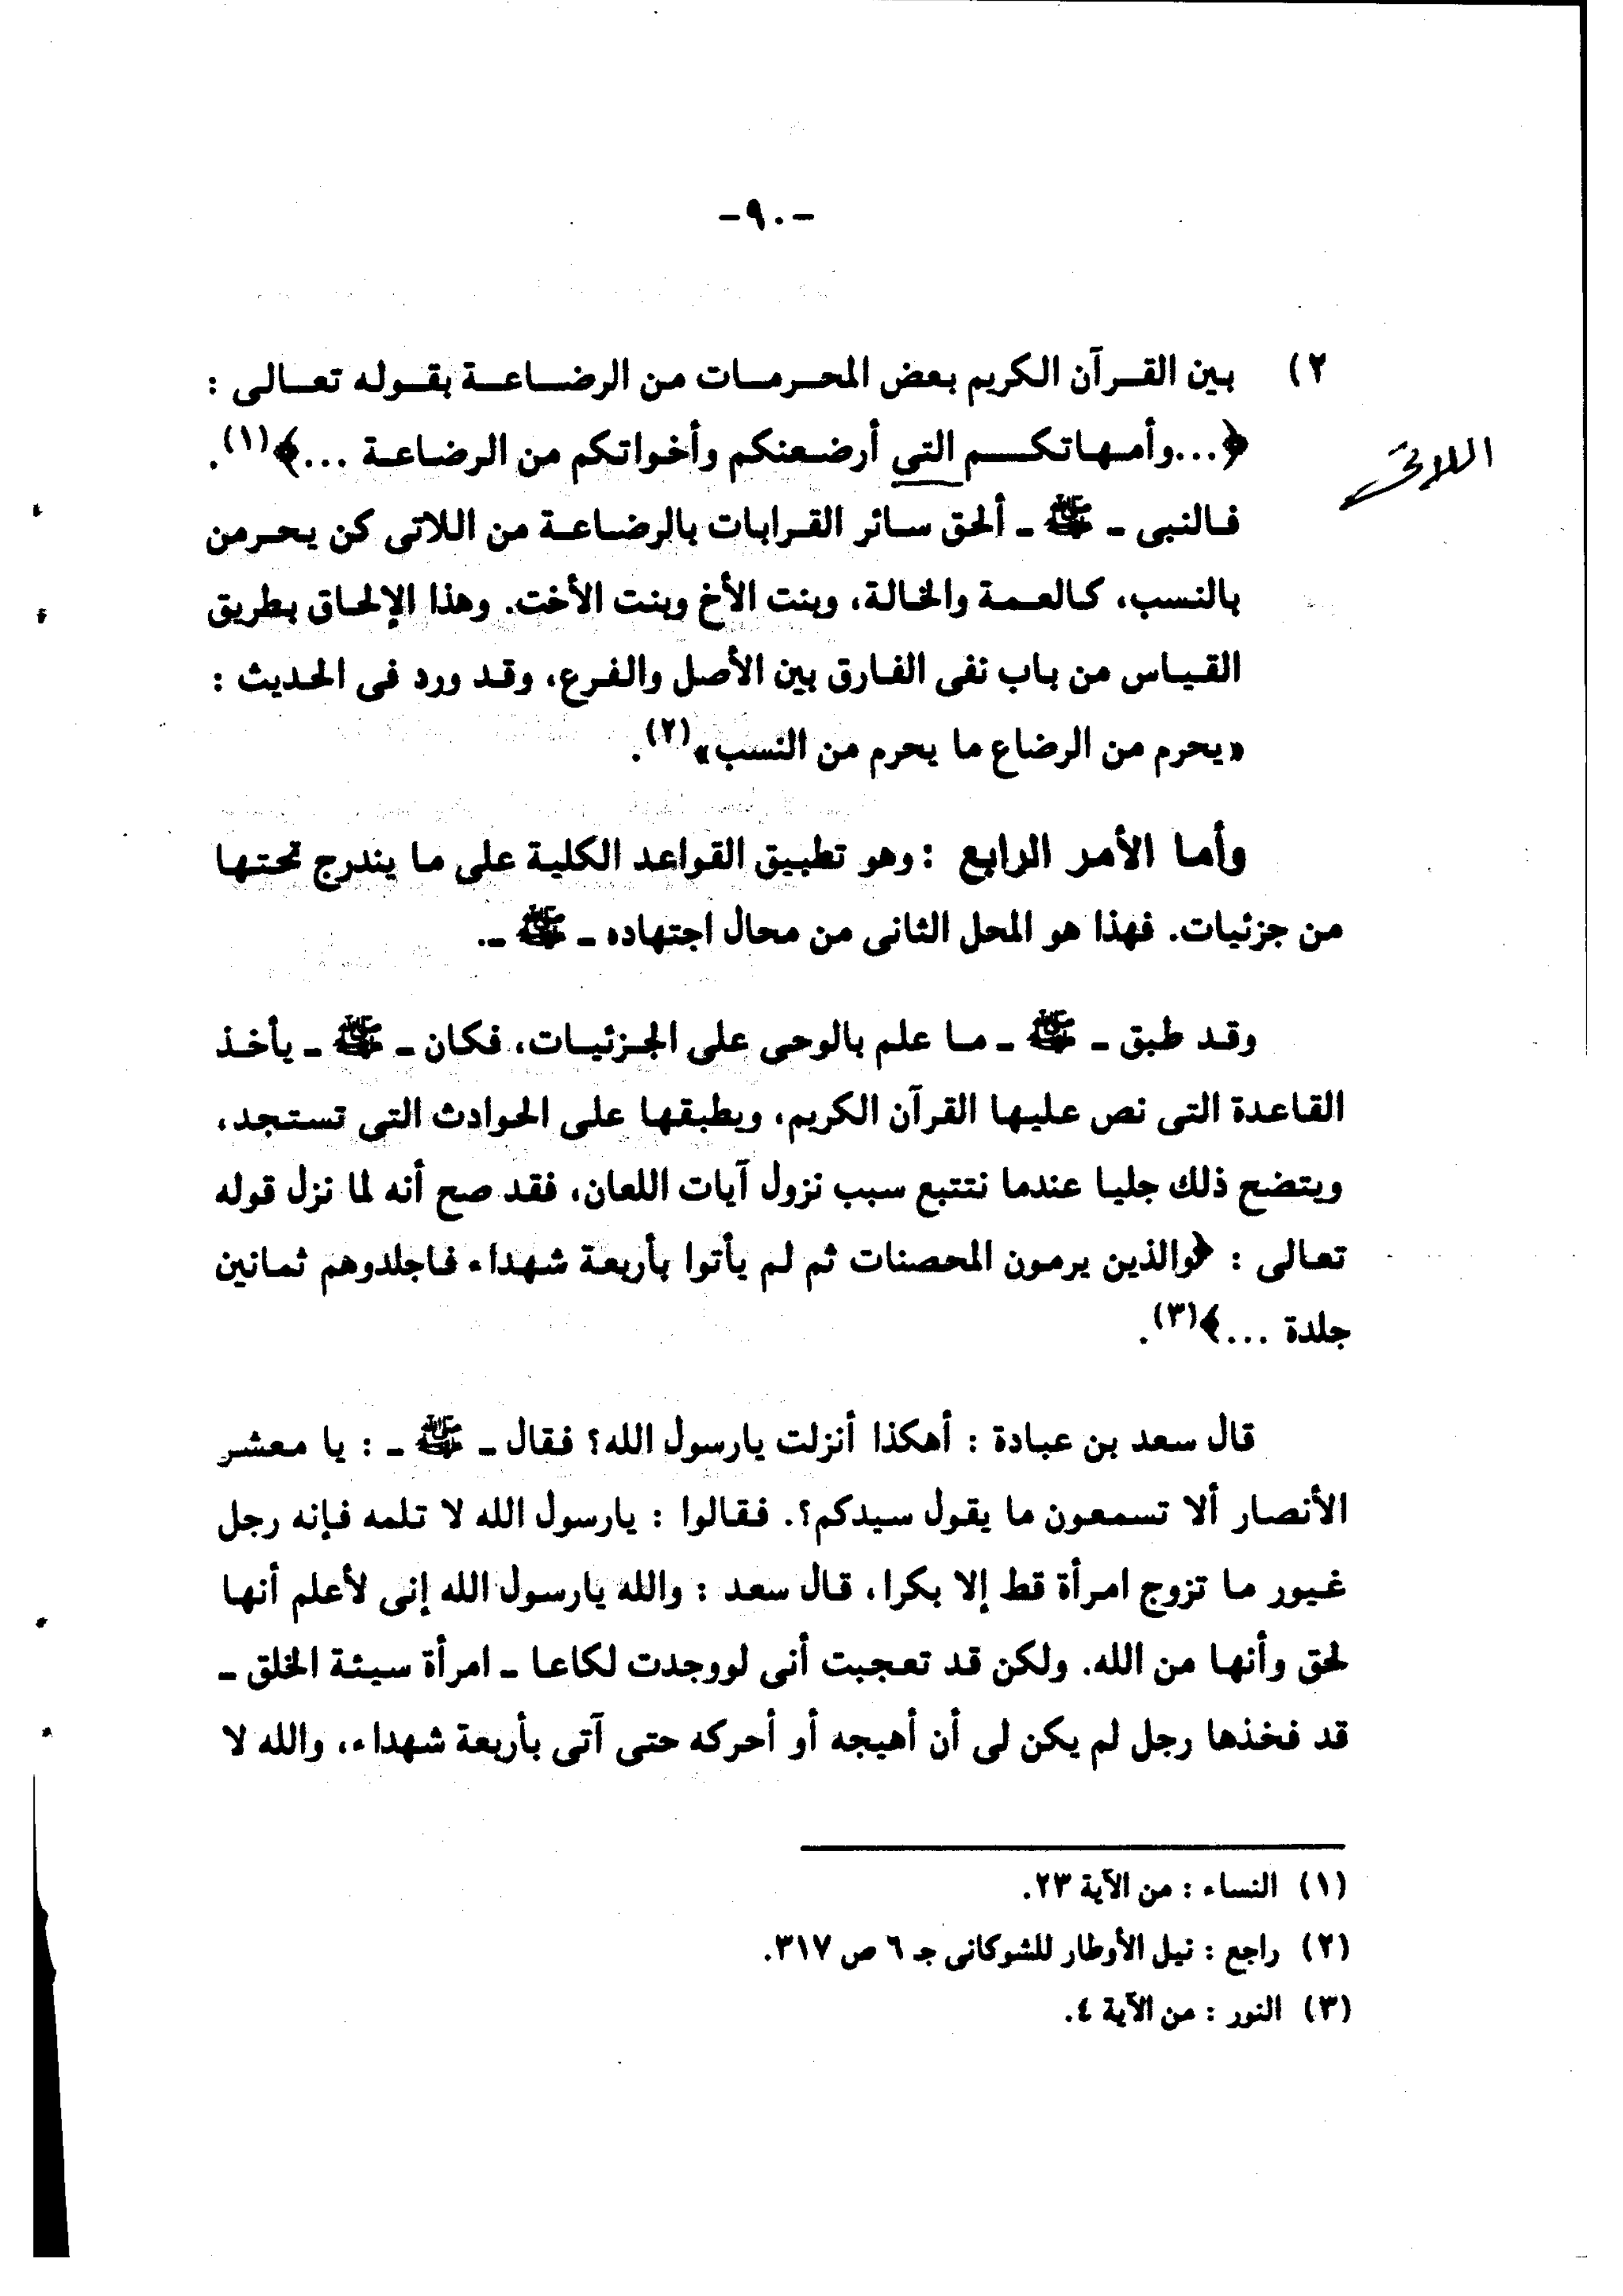 -٩٠-
٢) بين القرآن الكريم بعض المحرمات من الرضاعة بقوله تعالى :
﴿...وأمهاتكم التى أرضعنكم وأخواتكم من الرضاعة ...﴾(١).
اللاتى
فالنبى ـ ﷺ ـ ألحق سائر القرابات بالرضاعة من اللاتى كن يحرمن
بالنسب، كالعمة والخالة، وبنت الأخ وبنت الأخت. وهذا الإلحاق بطريق
القياس من باب نفى الفارق بين الأصل والفرع، وقد ورد فى الحديث :
«يحرم من الرضاع ما يحرم من النسب»(٢).
وأما الأمر الرابع : وهو تطبيق القواعد الكلية على ما يندرج تحتها
من جزئيات. فهذا هو المحل الثانى من محال اجتهاده ـ ﷺ ـ.
وقد طبق ـ ﷺ ـ ما علم بالوحى على الجزئيات، فكان ـ ﷺ ـ يأخذ
القاعدة التى نص عليها القرآن الكريم، ويطبقها على الحوادث التى تستجد،
ويتضح ذلك جليا عندما نتتبع سبب نزول آيات اللعان، فقد صح أنه لما نزل قوله
تعالى : ﴿والذين يرمون المحصنات ثم لم يأتوا بأربعة شهداء فاجلدوهم ثمانين
جلدة ...﴾(٣).
قال سعد بن عبادة : أهكذا أنزلت يارسول الله؟ فقال ـ ﷺ ـ : يا معشر
الأنصار ألا تسمعون ما يقول سيدكم؟. فقالوا : يارسول الله لا تلمه فإنه رجل
غيور ما تزوج امرأة قط إلا بكرا، قال سعد : والله يارسول الله إنى لأعلم أنها
لحق وأنها من الله. ولكن قد تعجبت أنى لووجدت لكاعا ـ امرأة سيئة الخلق ـ
قد فخذها رجل لم يكن لى أن أهيجه أو أحركه حتى آتى بأربعة شهداء، والله لا
(١) النساء : من الآية ٢٣.
(٢) راجع : نيل الأوطار للشوكانى جـ ٦ ص ٣١٧.
(٣) النور : من الآية ٤.